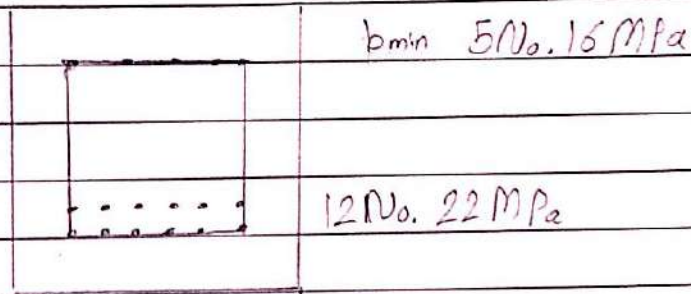 bmin 5No. 16 MPa
12No. 22 MPa